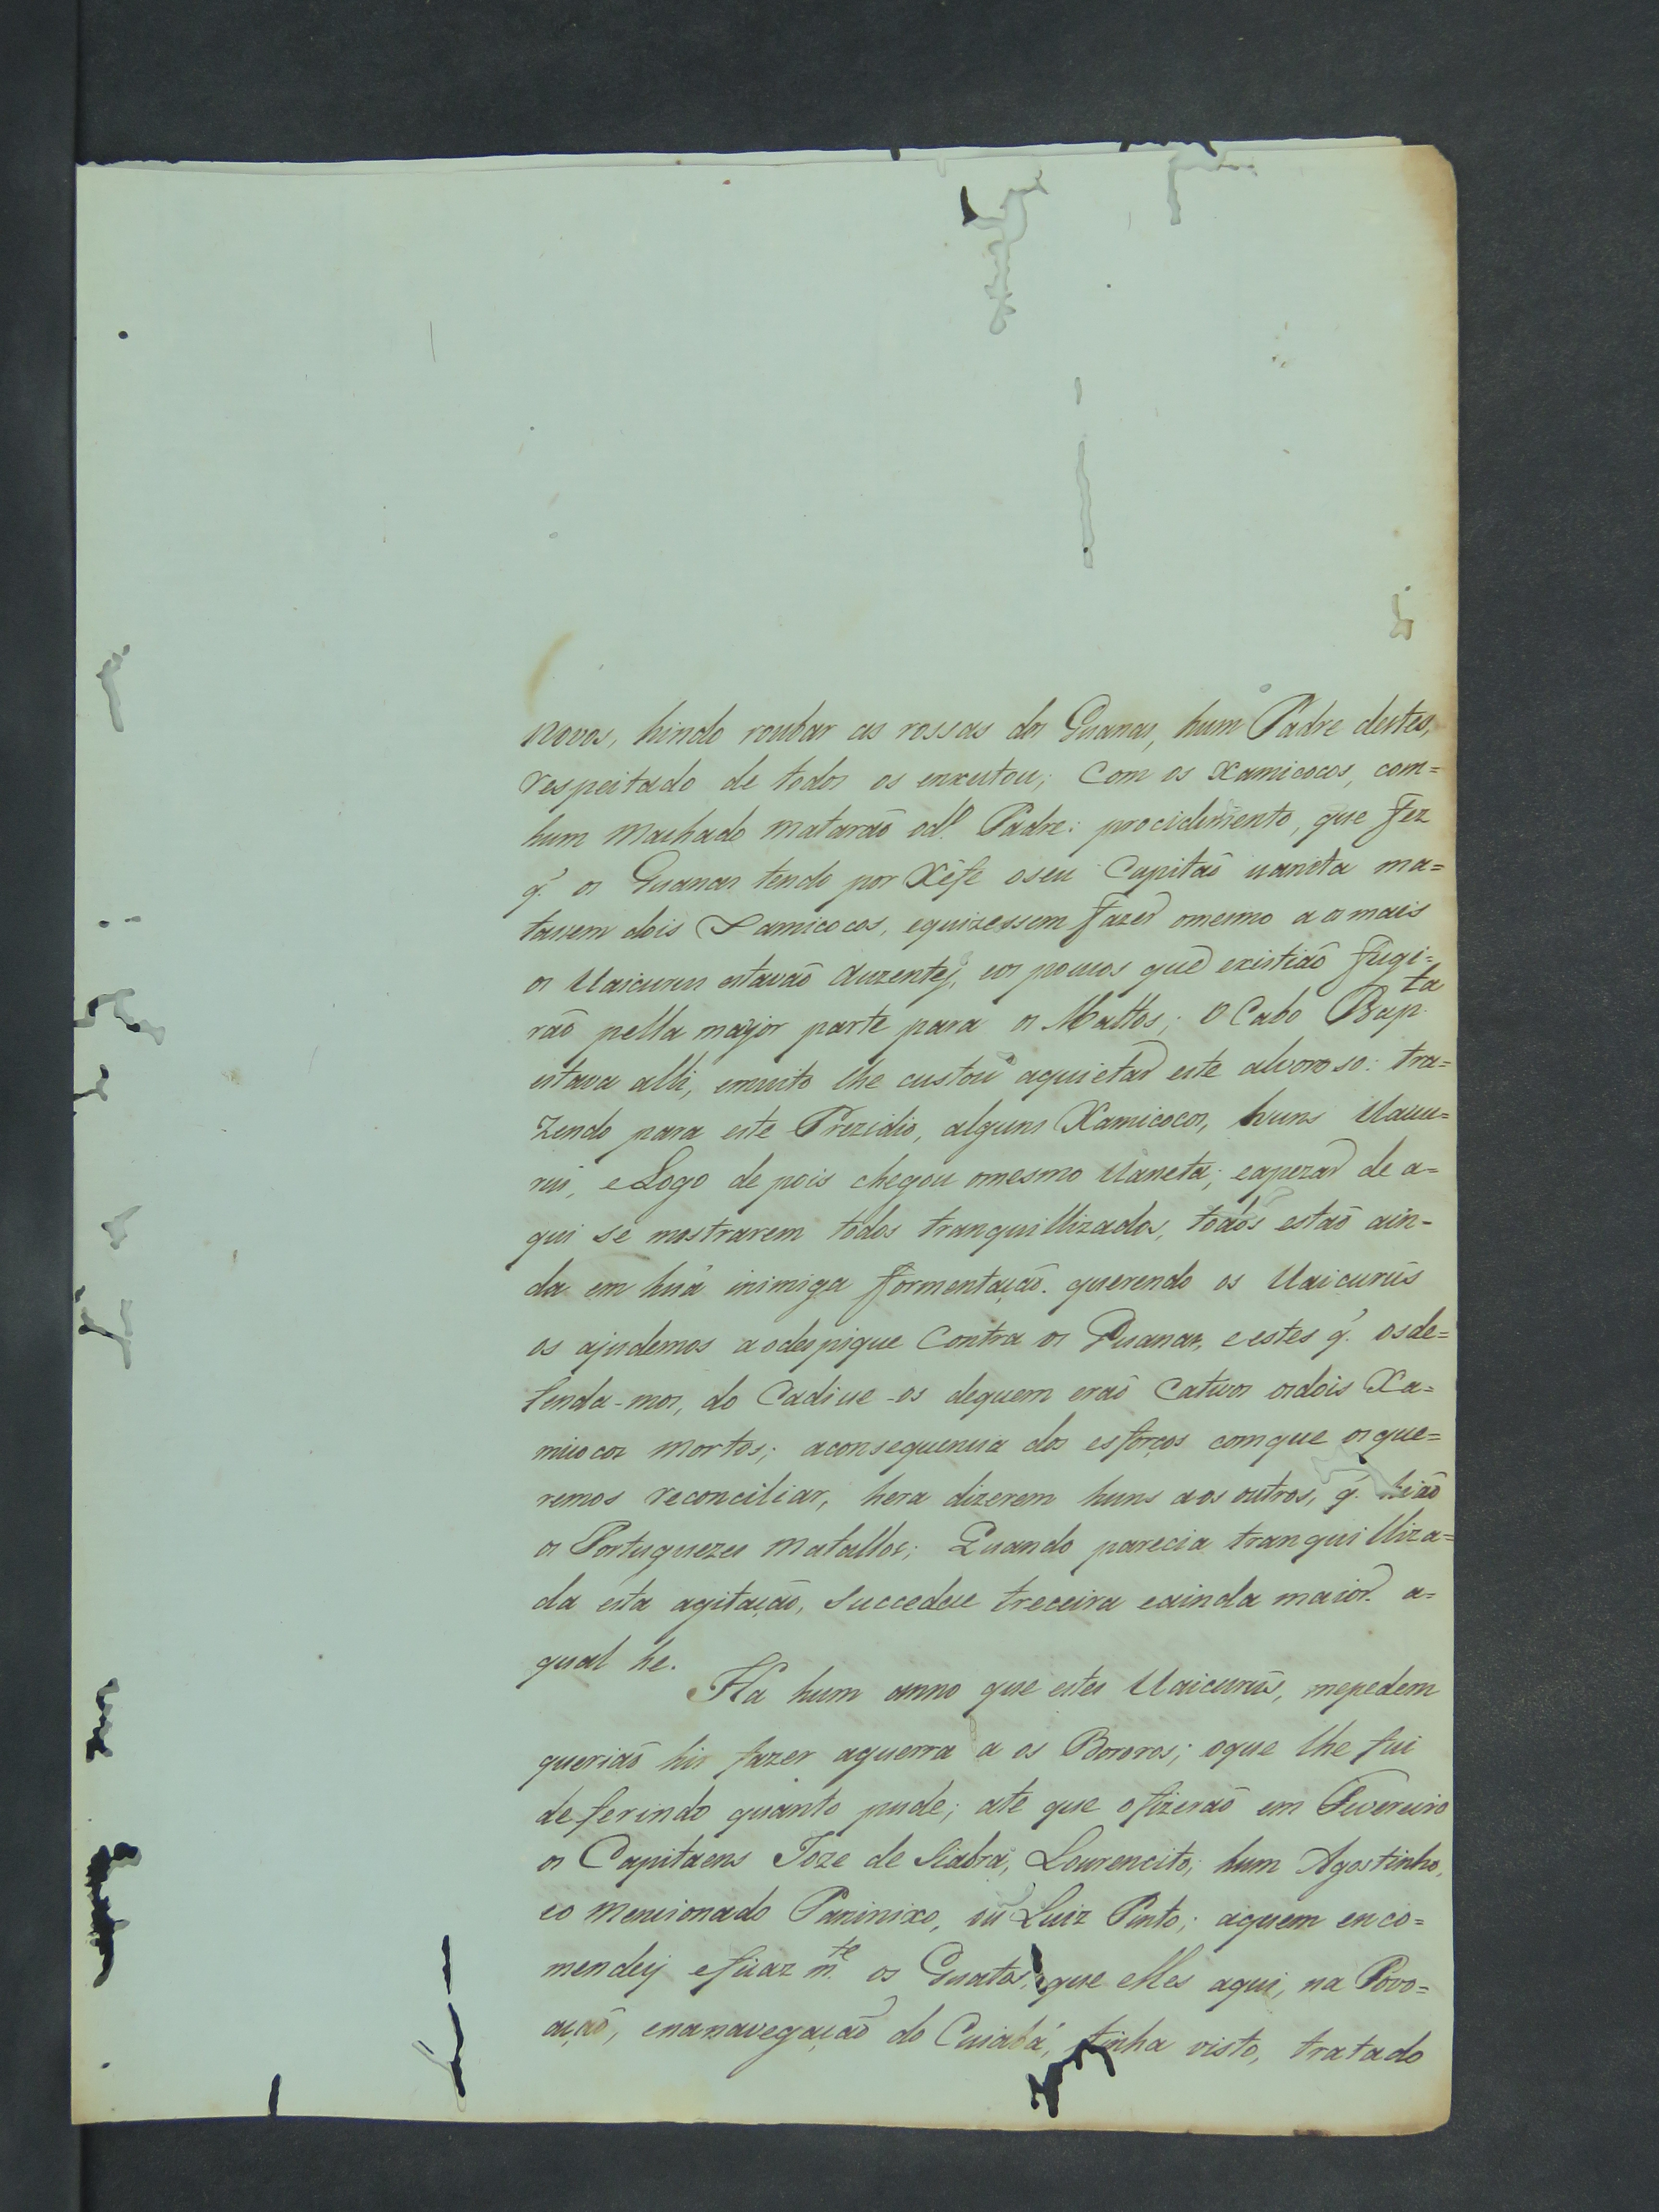 novos, hindo roubar as rossas dos Guanas, hum Padre destes,
respeitado de todos os enxutou; Com os Xamicocos, com=
hum Machado matarão od.º Padre: procidimento, que fez
q.' os Guanas tendo por Xéfe oseu Capitão uaneta ma=
tassem dois Xamicocos, equizessem fazer omesmo a os mais
os Uaicurus estavão auzentes, eos poucos que existião fugi=
rão pella major parte para os Mattos; O Cabo Bap.ta
estava alli, emuito lhe custou aquietar este alvoroso: tra=
zendo para este Prezidio, alguns Xamicocos, huns Uaicu=
rus, eLogo depois chegou omesmo Uaneta; eapezar de a=
qui se mostrarem todos tranquillizados, todos estão ain-
da em huã inimiga formentação. querendo os Uaicurús
os ajudemos aodespique Contra os Guanas, eestes q.' osde=
fenda-mos, do Cadiue-os dequem erão Cativos osdois Xa=
micocos mortos; aconsequencia dos esforços comque osque=
remos reconciliar, hera dizerem huns aos outros, q.' hião
os Portuguezes matallos; Quando parecia tranquilliza=
da esta agitação, succedeu treceira eainda maior. a=
qual he.
Ha hum anno que estes Uaicurús, mepedem
querião hir fazer aguerra a os Bororos; oque lhe fui
deferindo quanto pude; até que ofizerão em Fevereiro
os Capitaens Joze de Seabra, Lourencito, hum Agostinho,
eo mencionado Paninixo, ou Luiz Pinto; aquem enco=
mendey eficaz m.te os Guatos, que elles aqui, na Povo=
ação, enanavegação do Cuiabá, tinha visto, tratado